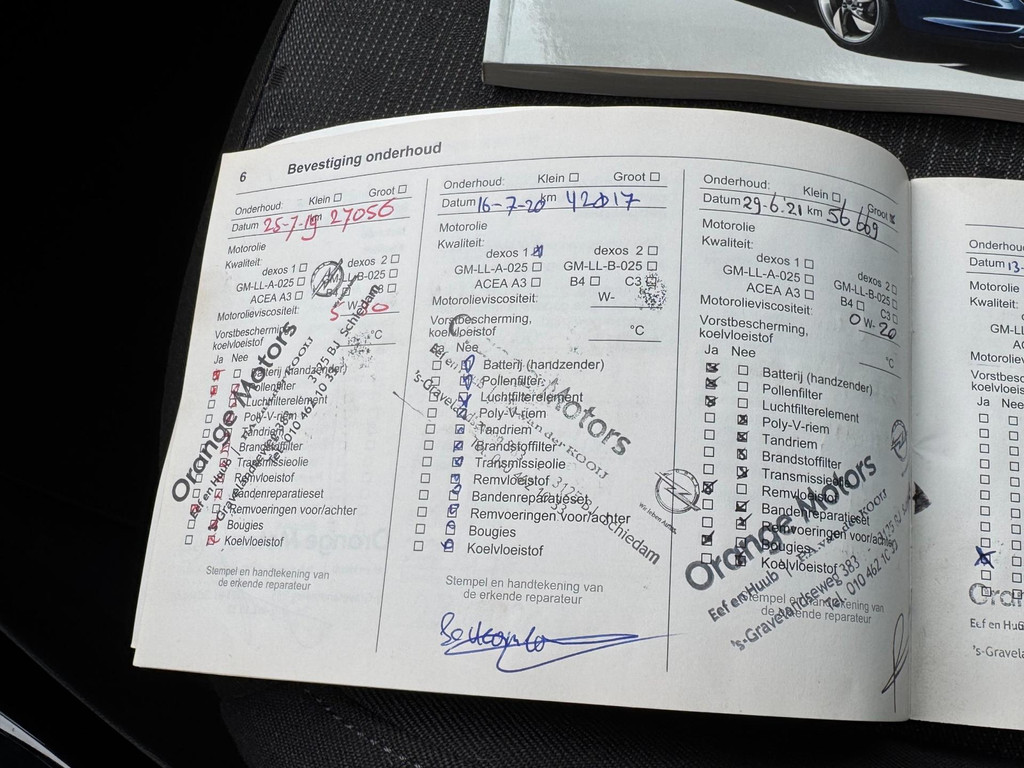 6 Bevestiging onderhoud
Onderhoud: Klein Groot
Datum 25-7-19 km 27056
Motorolie
Kwaliteit:
dexos 1 dexos 2
GM-LL-A-025 GM-LL-B-025
ACEA A3 B4 C3
Motorolieviscositeit: 5 W-30
Vorstbescherming,
koelvloeistof °C
Ja Nee
Batterij (handzender)
Pollenfilter
Luchtfilterelement
Poly-V-riem
Tandriem
Brandstoffilter
Transmissieolie
Remvloeistof
Bandenreparatieset
Remvoeringen voor/achter
Bougies
Koelvloeistof
Orange Motors
Eef en Huub
's-Gravelandseweg 383
Schiedam
Stempel en handtekening van
de erkende reparateur
Onderhoud: Klein Groot
Datum 16-7-20 km 42017
Motorolie
Kwaliteit:
dexos 1 dexos 2
GM-LL-A-025 GM-LL-B-025
ACEA A3 B4 C3
Motorolieviscositeit: W-
Vorstbescherming,
koelvloeistof °C
Ja Nee
Batterij (handzender)
Pollenfilter
Luchtfilterelement
Poly-V-riem
Tandriem
Brandstoffilter
Transmissieolie
Remvloeistof
Bandenreparatieset
Remvoeringen voor/achter
Bougies
Koelvloeistof
Motors
van der KOOIJ
Schiedam
Stempel en handtekening van
de erkende reparateur
Onderhoud: Klein Groot
Datum 29-6-21 km 56669
Motorolie
Kwaliteit:
dexos 1 dexos 2
GM-LL-A-025 GM-LL-B-025
ACEA A3 B4 C3
Motorolieviscositeit: 0 W-20
Vorstbescherming,
koelvloeistof °C
Ja Nee
Batterij (handzender)
Pollenfilter
Luchtfilterelement
Poly-V-riem
Tandriem
Brandstoffilter
Transmissieolie
Remvloeistof
Bandenreparatieset
Remvoeringen voor/achter
Bougies
Koelvloeistof
Wir leben Autos.
Orange Motors
Eef en Huub van der KOOIJ
's-Gravelandseweg 383
Tel. 010 462 10 33
Stempel en handtekening van
de erkende reparateur
Onderhoud
Datum 13-
Motorolie
Kwaliteit:
GM-L
AC
Motorolievis
Vorstbesche
koelvloeistof
Ja Nee
Oran
Eef en Hu
's-Gravela